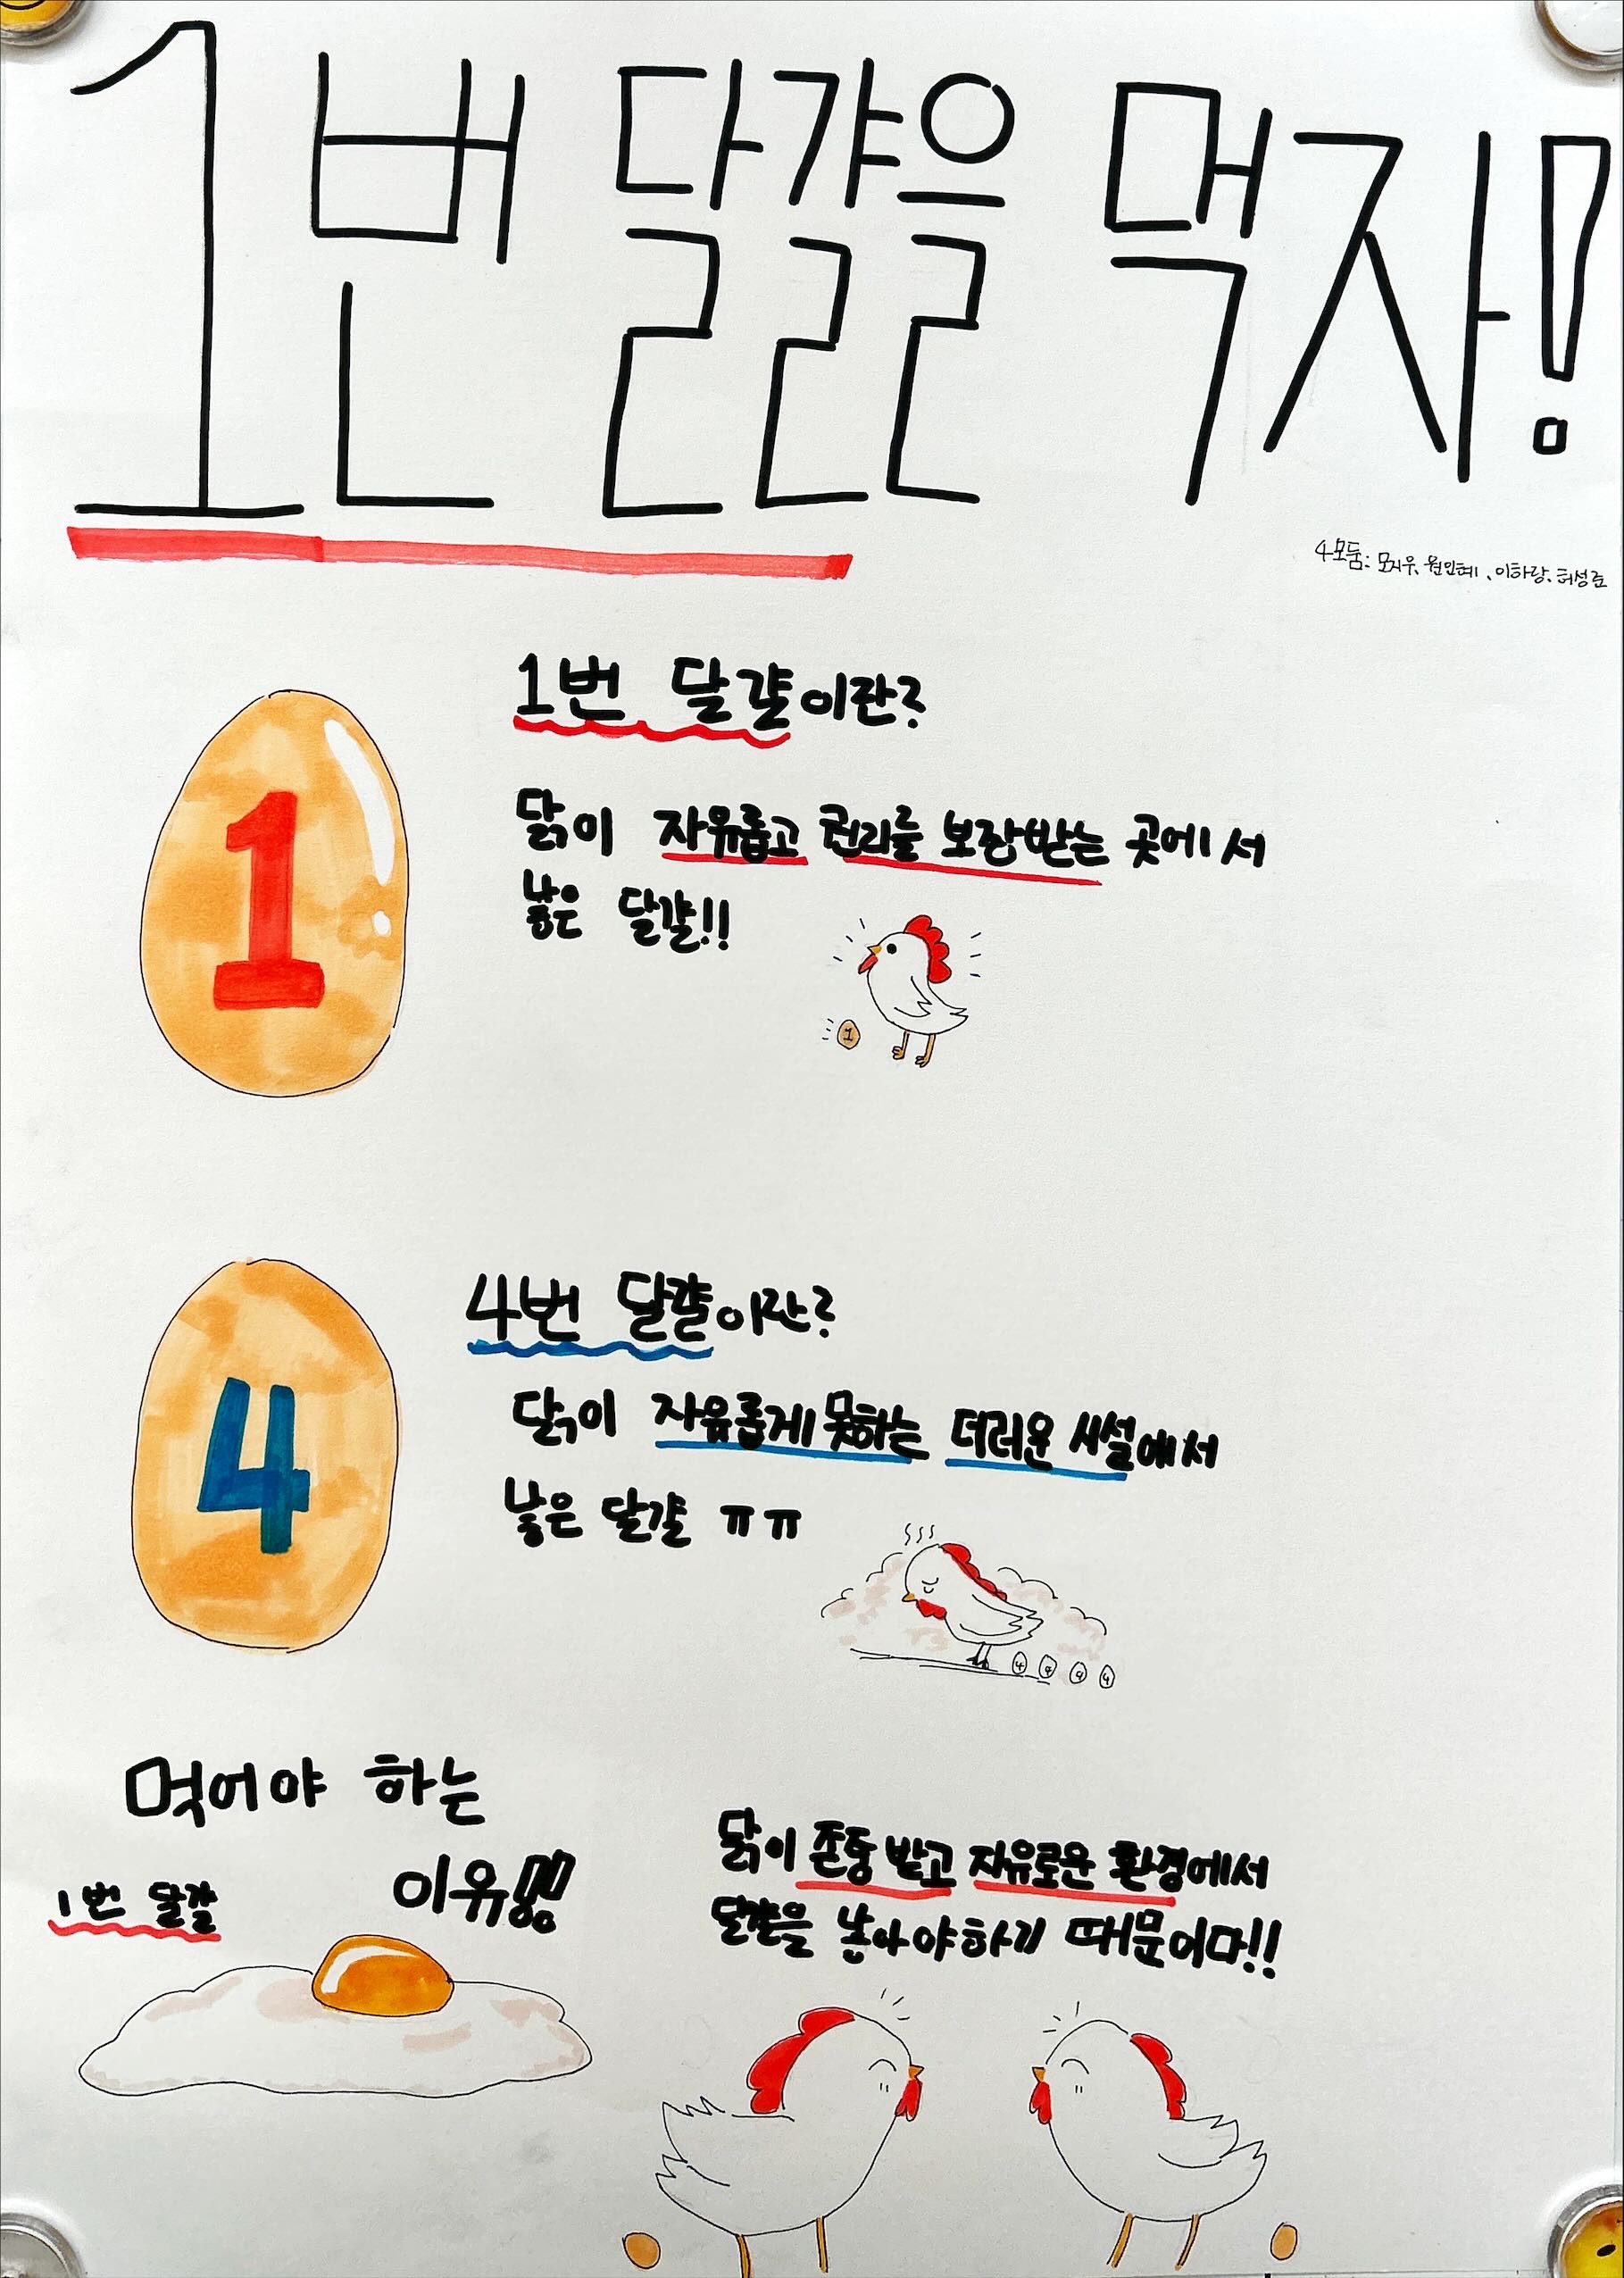 1번 달걀을 먹자!
4모둠: 모지우, 원인혜, 이하랑, 허성준
1번 달걀이란?
1
닭이 자유롭고 권리를 보장받는 곳에서
낳은 달걀!!
1
4번 달걀이란?
4
닭이 자유롭게 못하는 더러운 시설에서
낳은 달걀 ㅠㅠ
4 4 4 4
먹어야 하는
이유!!
1번 달걀
닭이 존중 받고 자유로운 환경에서
달걀을 낳아야하기 때문이다!!